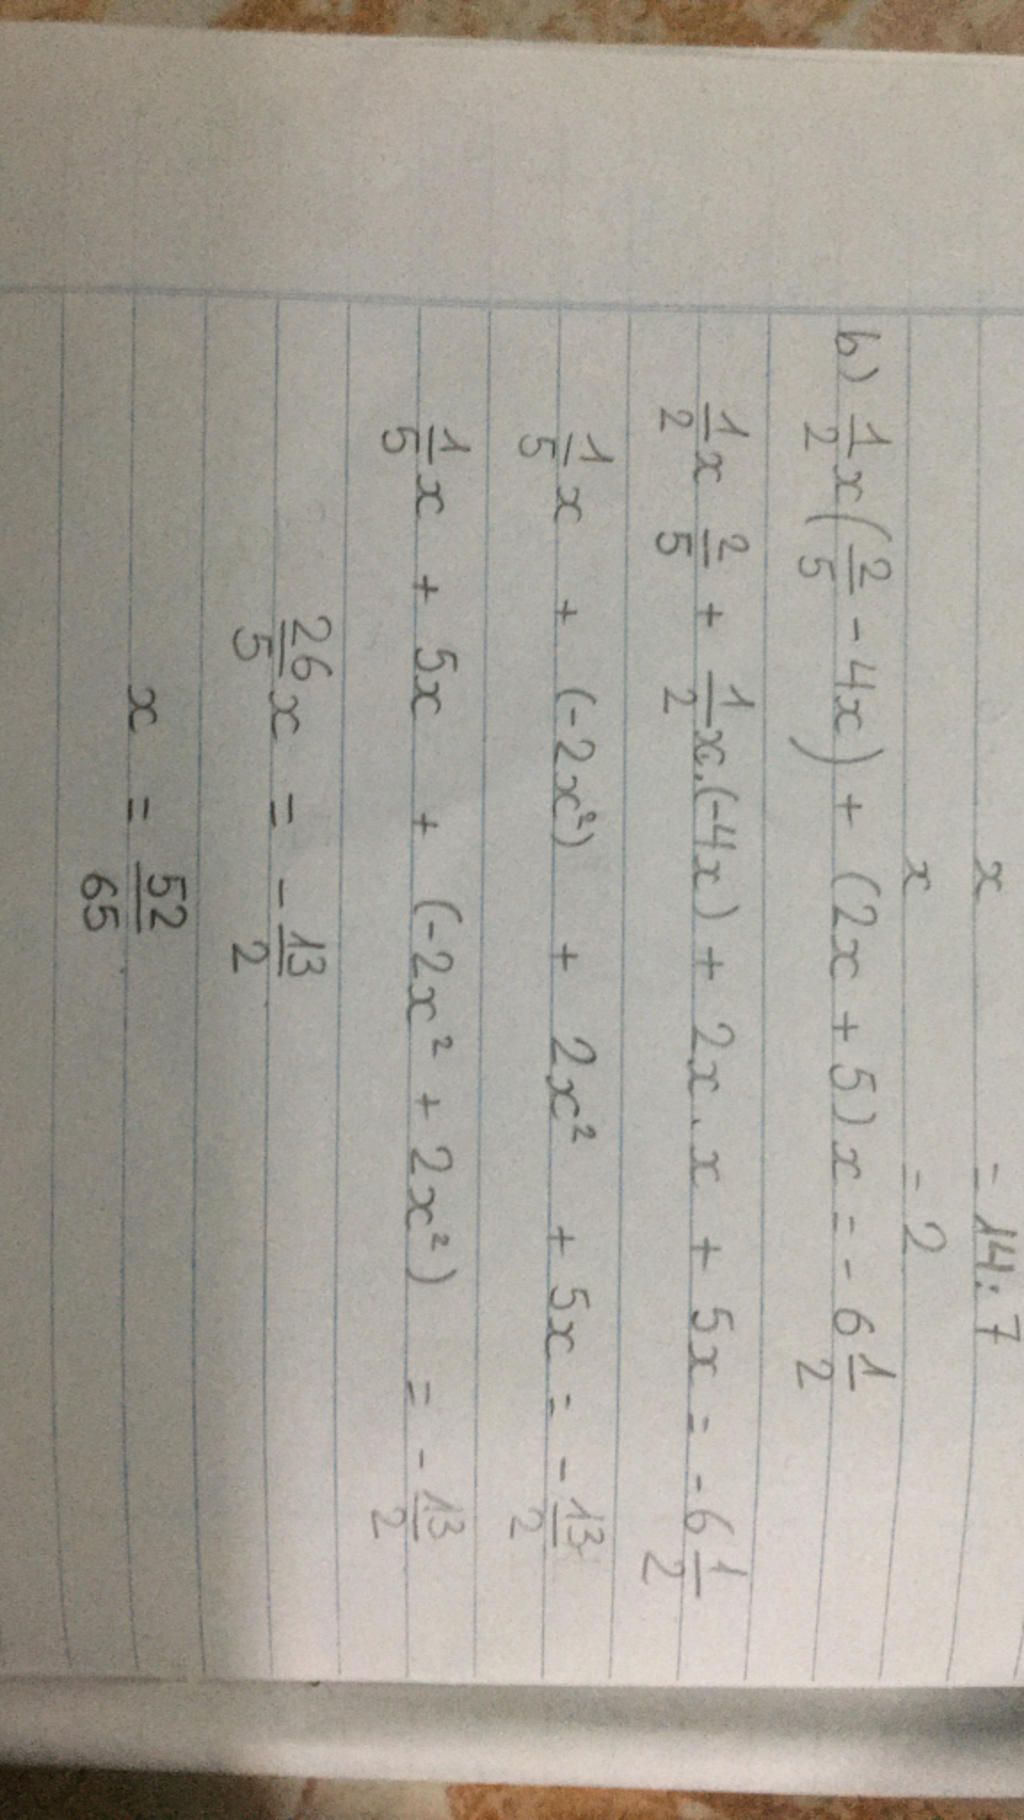 x = 14 : 7
x = 2
b) 1/2 x(2/5 - 4x) + (2x + 5)x = - 6 1/2
1/2 x 2/5 + 1/2 x.(-4x) + 2x . x + 5x = - 6 1/2
1/5 x + (-2x²) + 2x² + 5x = - 13/2
1/5 x + 5x + (-2x² + 2x²) = - 13/2
26/5 x = - 13/2
x = 52/65